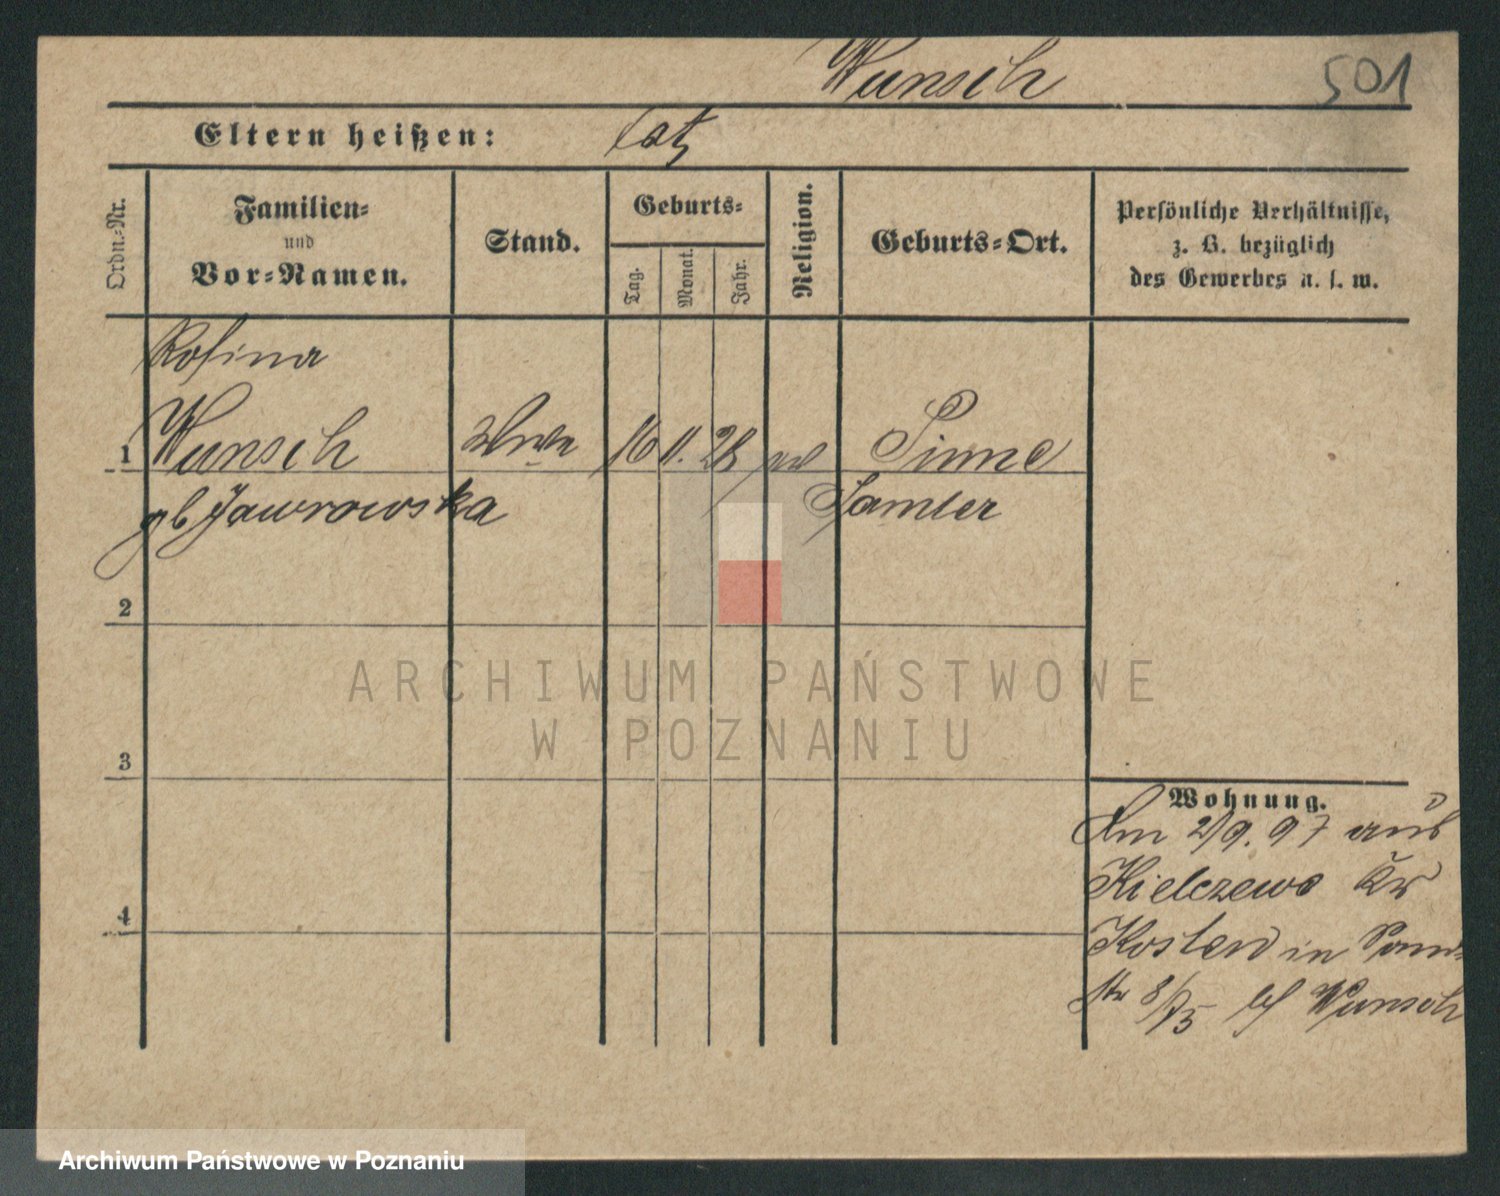 Wunsch
501
Eltern heißen:
Ordn.-Nr.
Familien-
und
Vor-Namen.
Stand.
Geburts-
Tag.
Monat.
Jahr.
Religion.
Geburts-Ort.
Persönliche Verhältnisse,
z. B. bezüglich
des Gewerbes u. s. w.
Rosina
1 Wunsch Wwe 16 11. 28 Pinne
gb Jaworowska Samter
2
3
4
Wohnung.
Am 2/9. 97 aus
Kielczewo Kr
Kosten in
str 8/75 bei Wunsch
ARCHIWUM PAŃSTWOWE
W POZNANIU
Archiwum Państwowe w Poznaniu